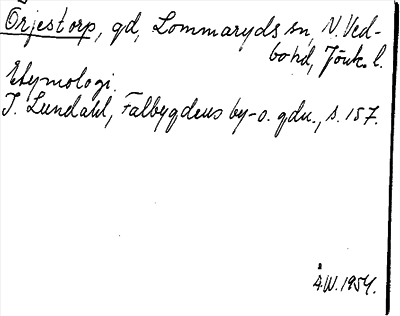 Örjestorp, gd, Lommaryds sn, N. Ved-
bo hd, Jönk. l.
Etymologi.
I. Lundahl, Falbygdens by- o. gdn., s. 157.
ÅW. 1954.